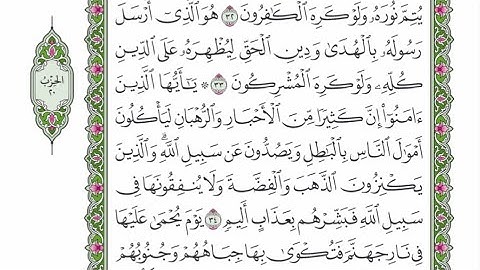 يُتِمَّ نُورَهُۥ وَلَوْ كَرِهَ ٱلْكَٰفِرُونَ ٣٢ هُوَ ٱلَّذِىٓ أَرْسَلَ
رَسُولَهُۥ بِٱلْهُدَىٰ وَدِينِ ٱلْحَقِّ لِيُظْهِرَهُۥ عَلَى ٱلدِّينِ
كُلِّهِۦ وَلَوْ كَرِهَ ٱلْمُشْرِكُونَ ٣٣ ۞ يَٰٓأَيُّهَا ٱلَّذِينَ
ءَامَنُوٓا۟ إِنَّ كَثِيرًا مِّنَ ٱلْأَحْبَارِ وَٱلرُّهْبَانِ لَيَأْكُلُونَ
أَمْوَٰلَ ٱلنَّاسِ بِٱلْبَٰطِلِ وَيَصُدُّونَ عَن سَبِيلِ ٱللَّهِ ۗ وَٱلَّذِينَ
يَكْنِزُونَ ٱلذَّهَبَ وَٱلْفِضَّةَ وَلَا يُنفِقُونَهَا فِى
سَبِيلِ ٱللَّهِ فَبَشِّرْهُم بِعَذَابٍ أَلِيمٍ ٣٤ يَوْمَ يُحْمَىٰ عَلَيْهَا
فِى نَارِ جَهَنَّمَ فَتُكْوَىٰ بِهَا جِبَاهُهُمْ وَجُنُوبُهُمْ
الحِزْبُ
٢٠